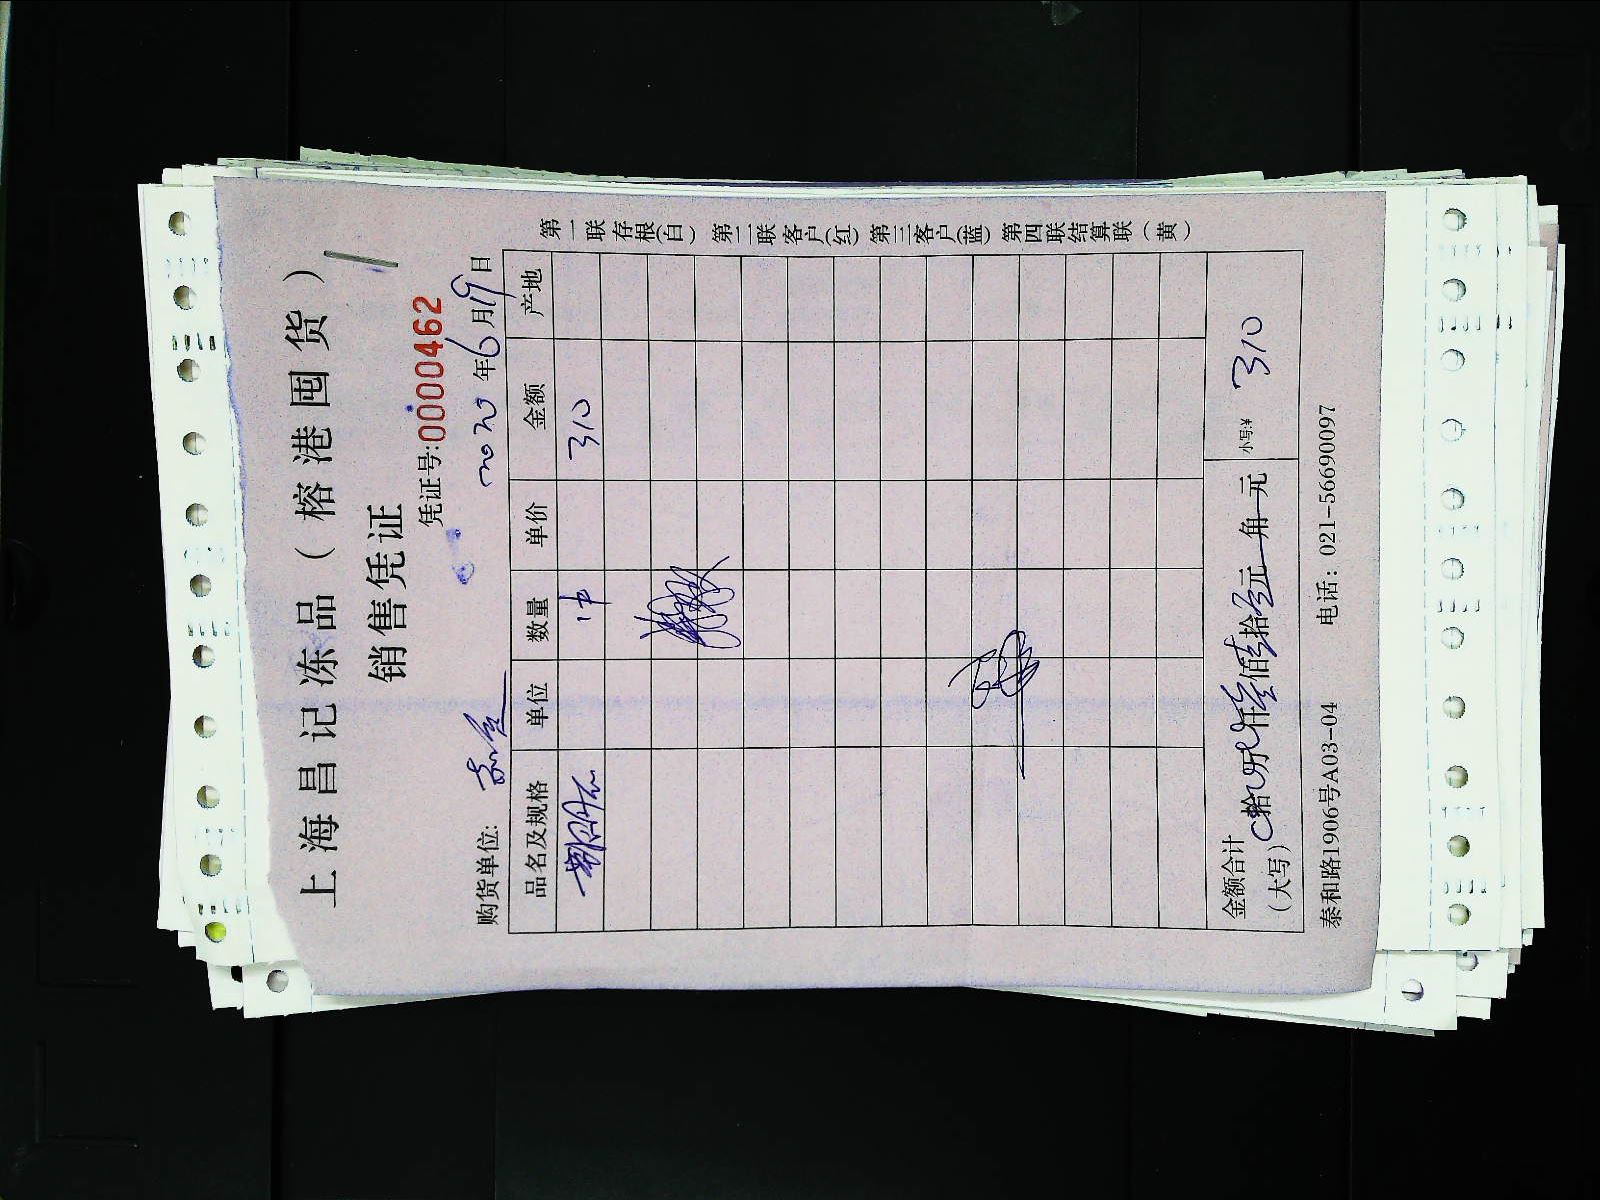 上海昌记冻品（榕港囤货）
销售凭证
凭证号:0000462
购货单位:
2020年6月19日
品名及规格 单位 数量 单价 金额 产地
1 310
金额合计（大写） 拾 万 仟叁佰壹拾 元 角 元 小写:¥ 310
泰和路1906号A03-04 电话: 021-56690097
第一联存根(白) 第二联客户(红) 第三客户(蓝) 第四联结算联（黄）